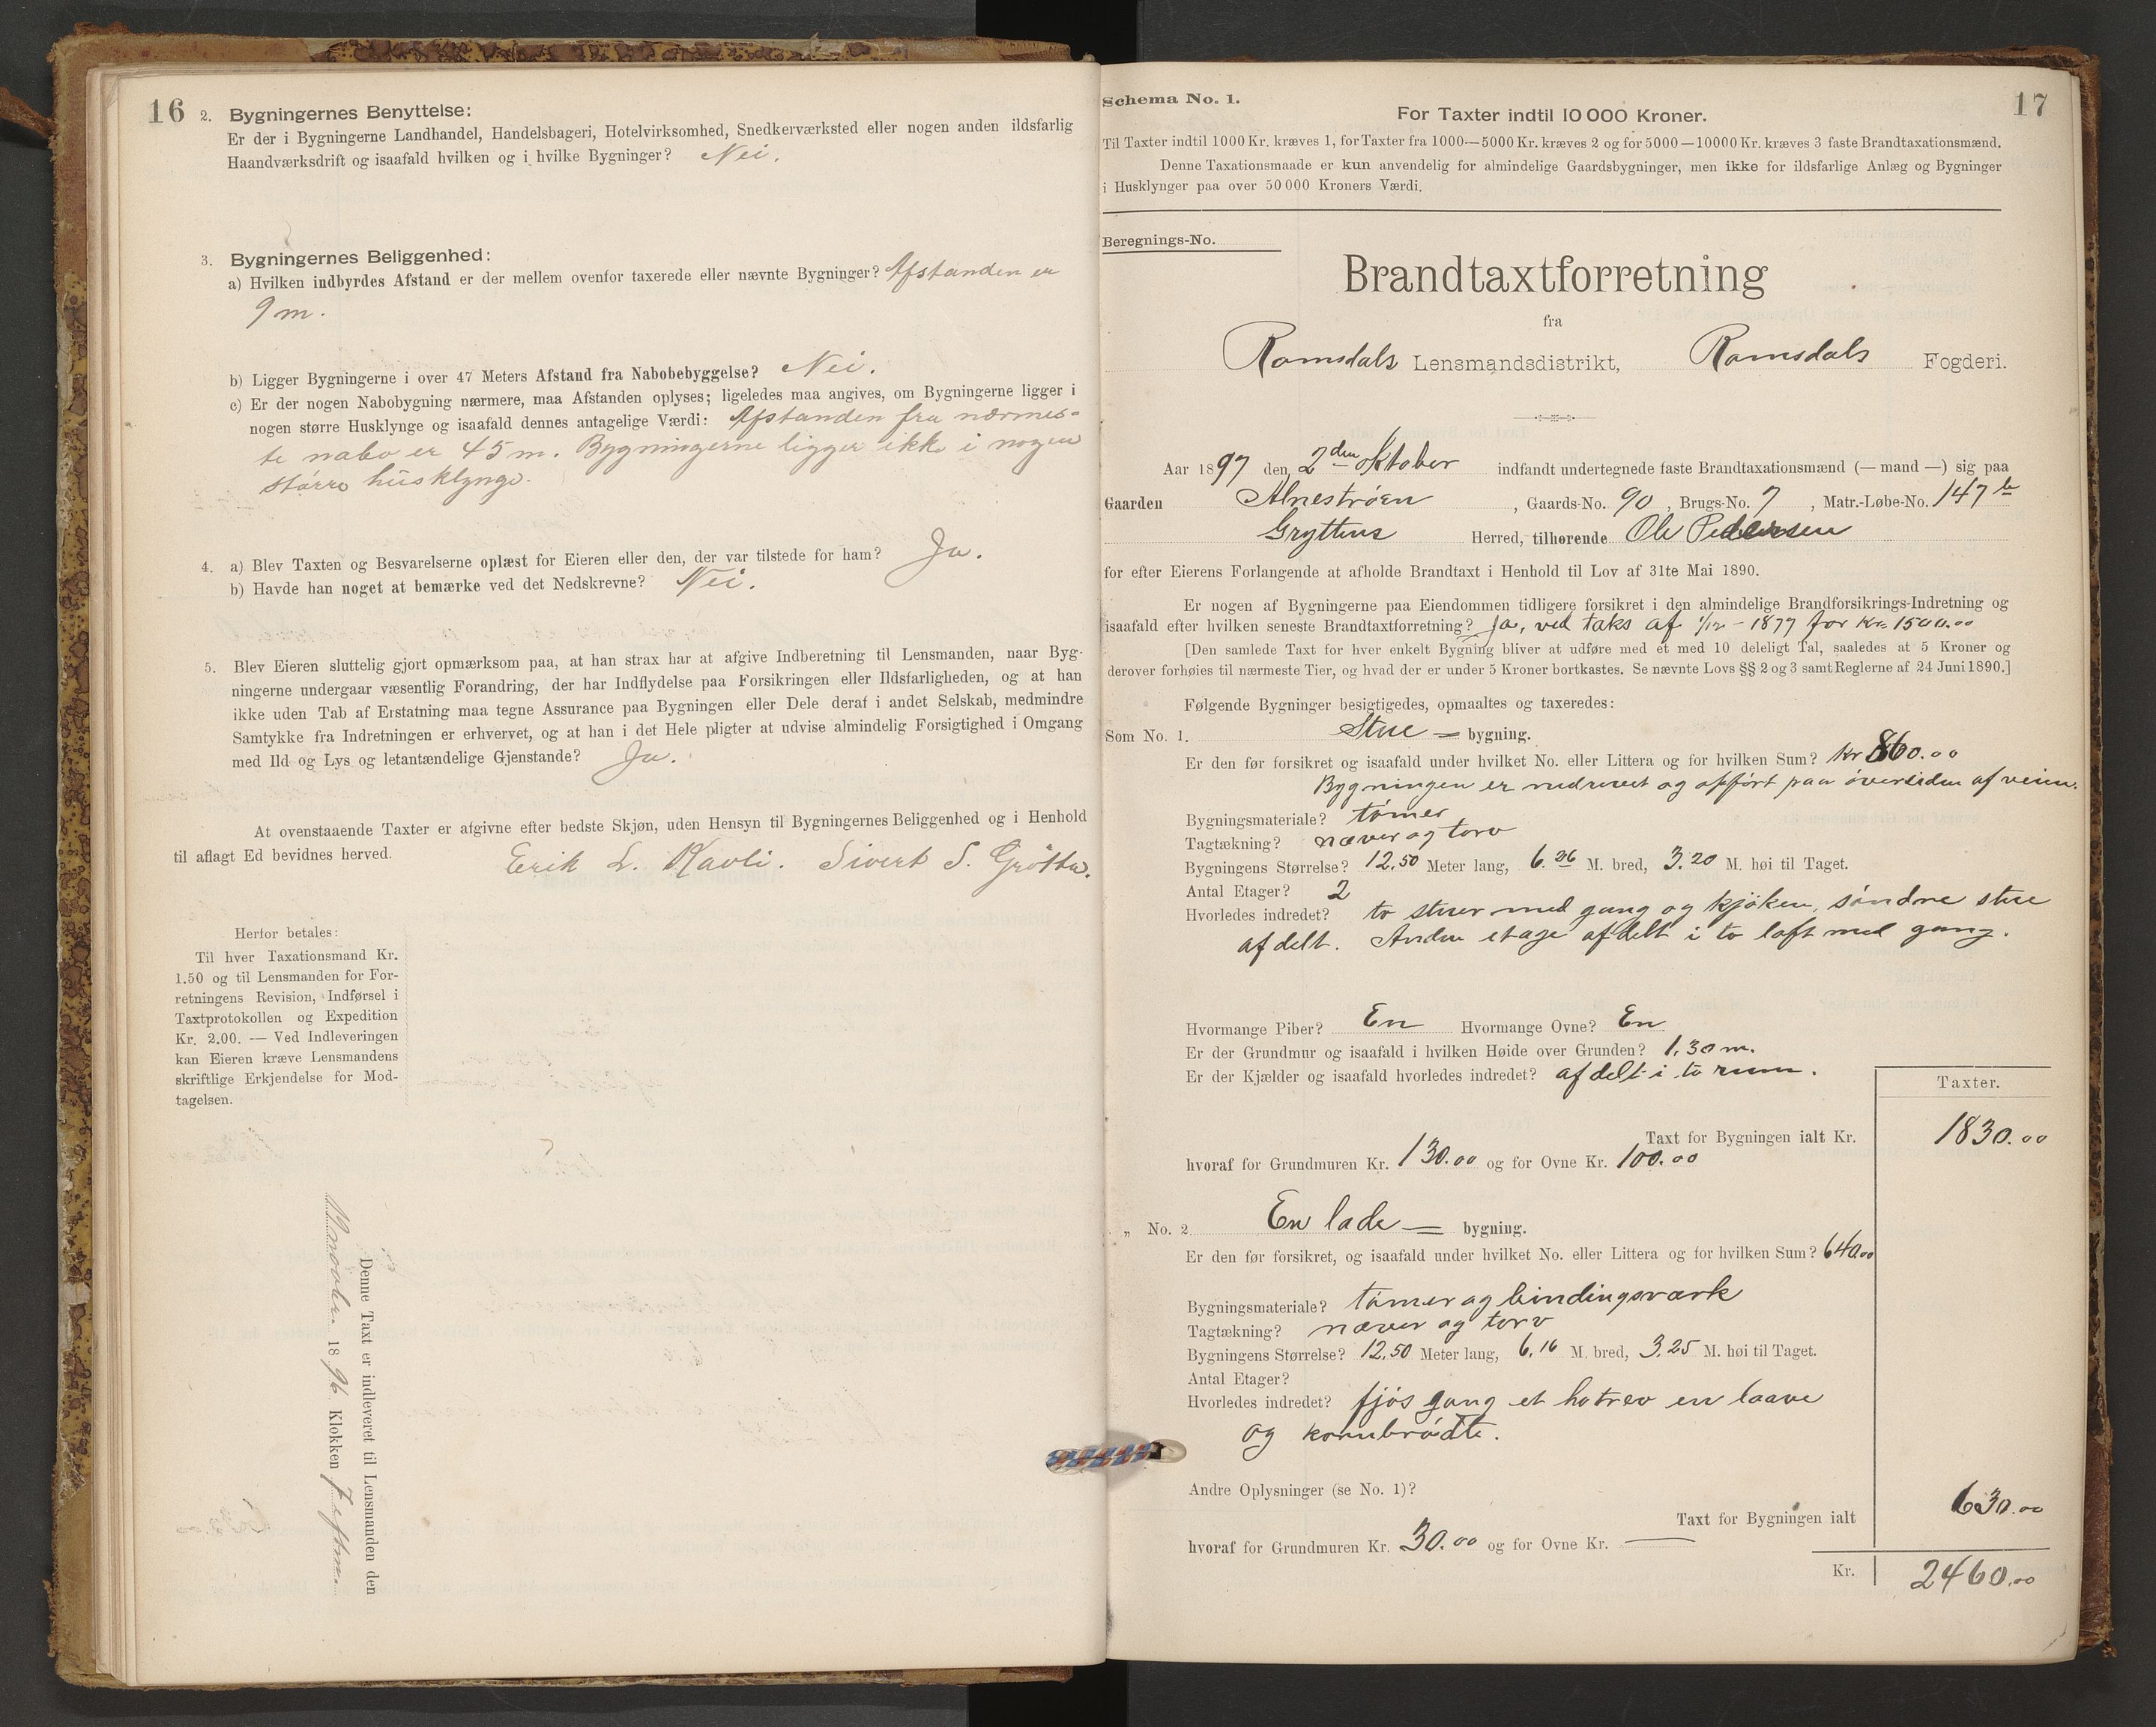 16
2. Bygningernes Benyttelse:
Er der i Bygningerne Landhandel, Handelsbageri, Hotelvirksomhed, Snedkerværksted eller nogen anden ildsfarlig
Haandværksdrift og isaafald hvilken og i hvilke Bygninger? Nei.
3. Bygningernes Beliggenhed:
a) Hvilken indbyrdes Afstand er der mellem ovenfor taxerede eller nævnte Bygninger? Afstanden er
9 m.
b) Ligger Bygningerne i over 47 Meters Afstand fra Nabobebyggelse? Nei.
c) Er der nogen Nabobygning nærmere, maa Afstanden oplyses; ligeledes maa angives, om Bygningerne ligger i
nogen større Husklynge og isaafald dennes antagelige Værdi: Afstanden fra nærmes-
te nabo er 45 m. Bygningerne ligger ikke i nogen
større husklynge.
4. a) Blev Taxten og Besvarelserne oplæst for Eieren eller den, der var tilstede for ham? Ja.
b) Havde han noget at bemærke ved det Nedskrevne? Nei.
5. Blev Eieren sluttelig gjort opmærksom paa, at han strax har at afgive Indberetning til Lensmanden, naar Byg-
ningerne undergaar væsentlig Forandring, der har Indflydelse paa Forsikringen eller Ildsfarligheden, og at han
ikke uden Tab af Erstatning maa tegne Assurance paa Bygningen eller Dele deraf i andet Selskab, medmindre
Samtykke fra Indretningen er erhvervet, og at han i det Hele pligter at udvise almindelig Forsigtighed i Omgang
med Ild og Lys og letantændelige Gjenstande? Ja.
At ovenstaaende Taxter er afgivne efter bedste Skjøn, uden Hensyn til Bygningernes Beliggenhed og i Henhold
til aflagt Ed bevidnes herved.
Erik L. Kavli. Sivert S. Grøtta.
Herfor betales:
Til hver Taxationsmand Kr.
1.50 og til Lensmanden for For-
retningens Revision, Indførsel i
Taxtprotokollen og Expedition
Kr. 2.00. — Ved Indleveringen
kan Eieren kræve Lensmandens
skriftlige Erkjendelse for Mod-
tagelsen.
Denne Taxt er indleveret til Lensmanden den
1896 Klokken 7 eftm.
Schema No. 1.
17
For Taxter indtil 10 000 Kroner.
Til Taxter indtil 1000 Kr. kræves 1, for Taxter fra 1000—5000 Kr. kræves 2 og for 5000—10000 Kr. kræves 3 faste Brandtaxationsmænd.
Denne Taxationsmaade er kun anvendelig for almindelige Gaardsbygninger, men ikke for ildsfarlige Anlæg og Bygninger
i Husklynger paa over 50 000 Kroners Værdi.
Beregnings-No.
Brandtaxtforretning
fra
Romsdals Lensmandsdistrikt, Romsdals Fogderi.
Aar 1897 den 2den oktober indfandt undertegnede faste Brandtaxationsmænd (—mand—) sig paa
Gaarden Alnestrøen, Gaards-No. 90, Brugs-No. 7, Matr.-Løbe-No. 147 b
Gryttens Herred, tilhørende Ole Pedersen
for efter Eierens Forlangende at afholde Brandtaxt i Henhold til Lov af 31te Mai 1890.
Er nogen af Bygningerne paa Eiendommen tidligere forsikret i den almindelige Brandforsikrings-Indretning og
isaafald efter hvilken seneste Brandtaxtforretning? Ja, ved taks af 1/12 - 1877 for Kr. 1500.00
[Den samlede Taxt for hver enkelt Bygning bliver at udføre med et med 10 deleligt Tal, saaledes at 5 Kroner og
derover forhøies til nærmeste Tier, og hvad der er under 5 Kroner bortkastes. Se nævnte Lovs §§ 2 og 3 samt Reglerne af 24 Juni 1890.]
Følgende Bygninger besigtigedes, opmaaltes og taxeredes:
Som No. 1. Stue — bygning.
Er den før forsikret og isaafald under hvilket No. eller Littera og for hvilken Sum? Kr 860.00
Bygningen er nedrevet og opført paa øversiden af veien.
Bygningsmateriale? tømer
Tagtækning? næver og torv
Bygningens Størrelse? 12.50 Meter lang, 6.26 M. bred, 3.20 M. høi til Taget.
Antal Etager? 2
Hvorledes indredet? to stuer med gang og kjøken, søndre stue
afdelt. Anden etage afdelt i to loft med gang.
Hvormange Piber? En Hvormange Ovne? En
Er der Grundmur og isaafald i hvilken Høide over Grunden? 1,30 m.
Er der Kjælder og isaafald hvorledes indredet? afdelt i to rum.
Taxter.
Taxt for Bygningen ialt Kr. 1830.00
hvoraf for Grundmuren Kr. 130.00 og for Ovne Kr. 100.00
„ No. 2. En lade — bygning.
Er den før forsikret, og isaafald under hvilket No. eller Littera og for hvilken Sum? 640.00
Bygningsmateriale? tømer og bindingsværk
Tagtækning? næver og torv
Bygningens Størrelse? 12.50 Meter lang, 6.16 M. bred, 3.25 M. høi til Taget.
Antal Etager?
Hvorledes indredet? fjøs gang et hotrev en laave
og kornbrødte.
Andre Oplysninger (se No. 1)?
Taxt for Bygningen ialt 630.00
hvoraf for Grundmuren Kr. 30.00 og for Ovne Kr. —
Kr. 2460.00